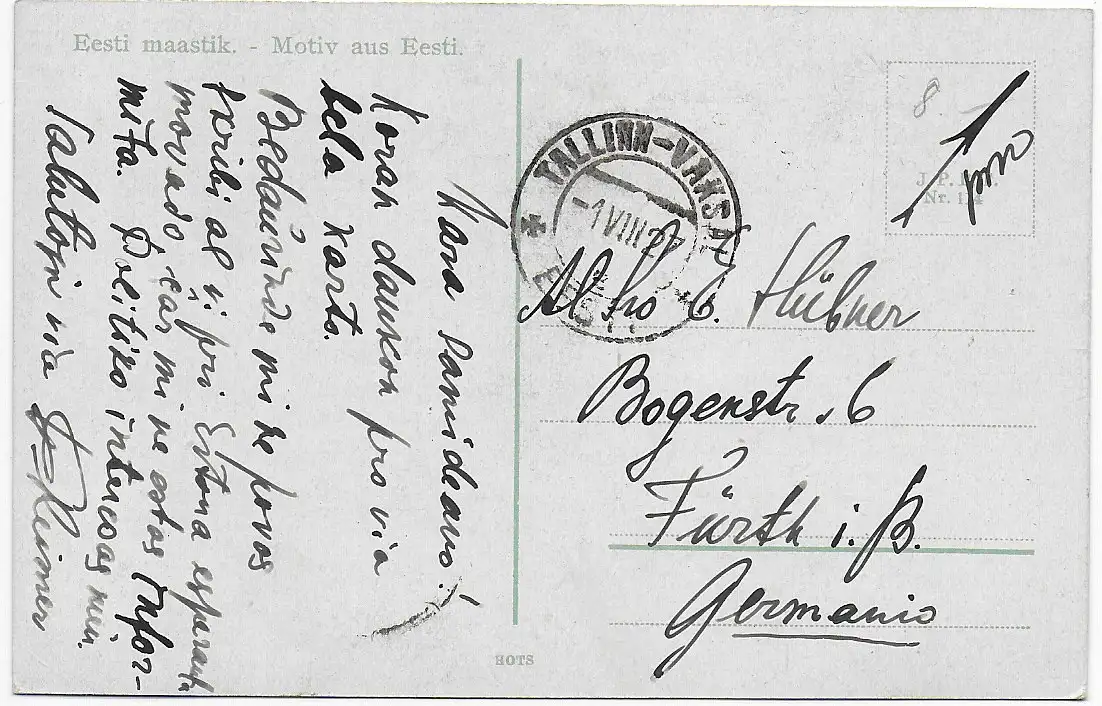 Eesti maastik. - Motiv aus Eesti.
Kara samideano!
Koran dankon pro via
bela karto.
Bedaŭrinde mi ne povos
skribi al vi pri Estona esperanta
movado, ĉar mi ne estas infor-
mita. Politiko interesas min.
Salutojn via
TALLINN-VAKSAL
-1 VIII 27
EESTI
J.P.
Nr. 114
Al sro G. Hübner
Bogenstr. 6
Fürth i. B.
Germanio
HOTS
8